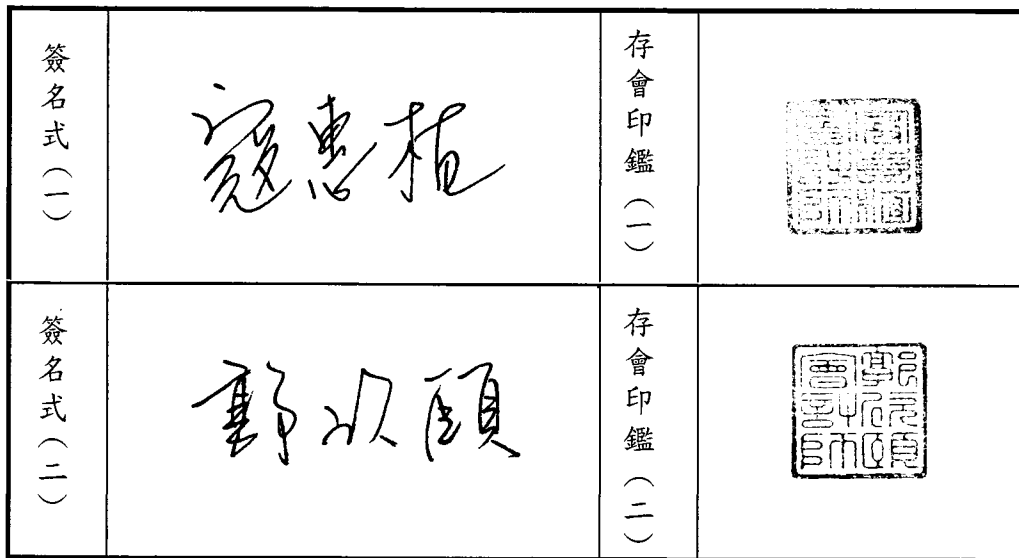 簽名式（一）
寇惠植
存會印鑑（一）
簽名式（二）
郭欣頤
存會印鑑（二）
郭欣頤會計師